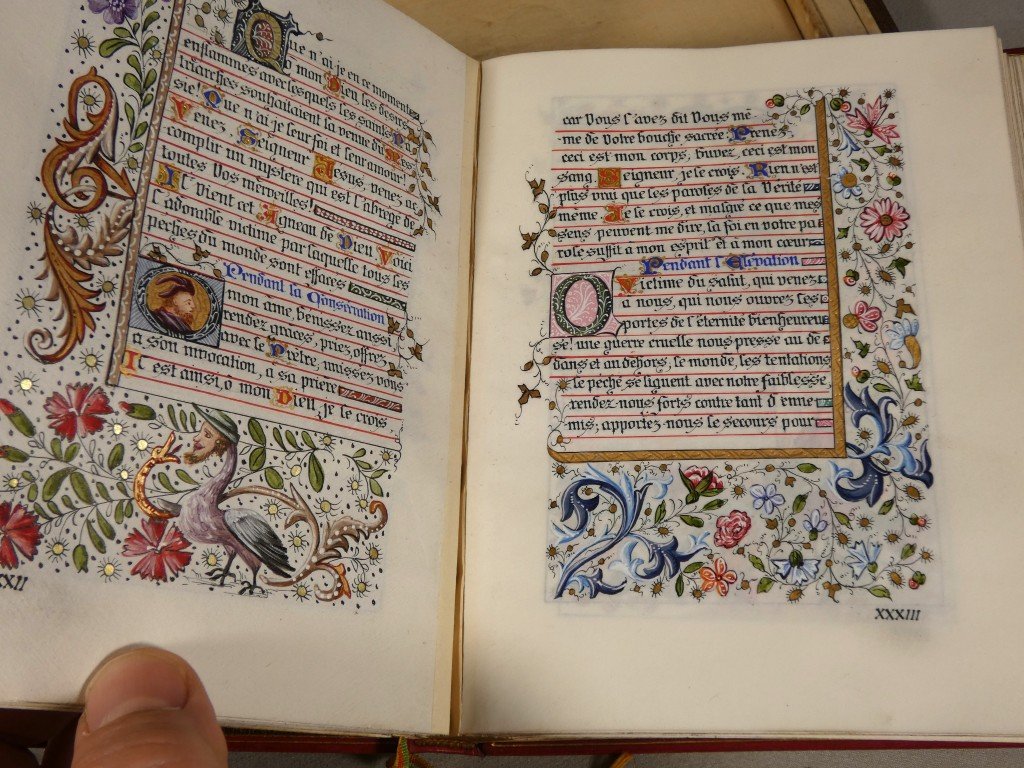 Que n'ai je en ce moment
mon Dieu, les desirs
enflammes avec lesquels les saints Pa
triarches souhaitaient la venue du Mes
sie! Que n'ai je leur foi et leur amour!
Venez Seigneur Jesus, venez ac
complir un mystere qui est l'abrege de
toutes Vos merveilles!
Il Vient cet Agneau de Dieu Voici
l'adorable victime par laquelle tous les
peches du monde sont effaces
Pendant la Consecration
O mon ame, benissez aussi
rendez graces, priez, offrez
avec le Pretre, unissez vous
a son invocation, a sa priere
Il est ainsi, o mon Dieu, je le crois
XXII
car Vous l'avez dit Vous me
me de Votre bouche sacree. Prenez
ceci est mon corps, buvez, ceci est mon
sang Seigneur, je le crois. Rien n'est
plus vrai que les paroles de la Verite
meme. Je le crois, et malgre ce que mes
sens peuvent me dire, la foi en votre pa
role suffit a mon esprit et a mon cœur
Pendant l'Elevation
O Victime du Salut, qui venez
a nous, qui nous ouvrez les
portes de l'éternite bienheureu
se! une guerre cruelle nous presse au de
dans et au dehors, le monde, les tentations
le peche se liguent avec notre faiblesse,
rendez-nous forts contre tant d'enne
mis; apportez-nous le secours pour
XXXIII